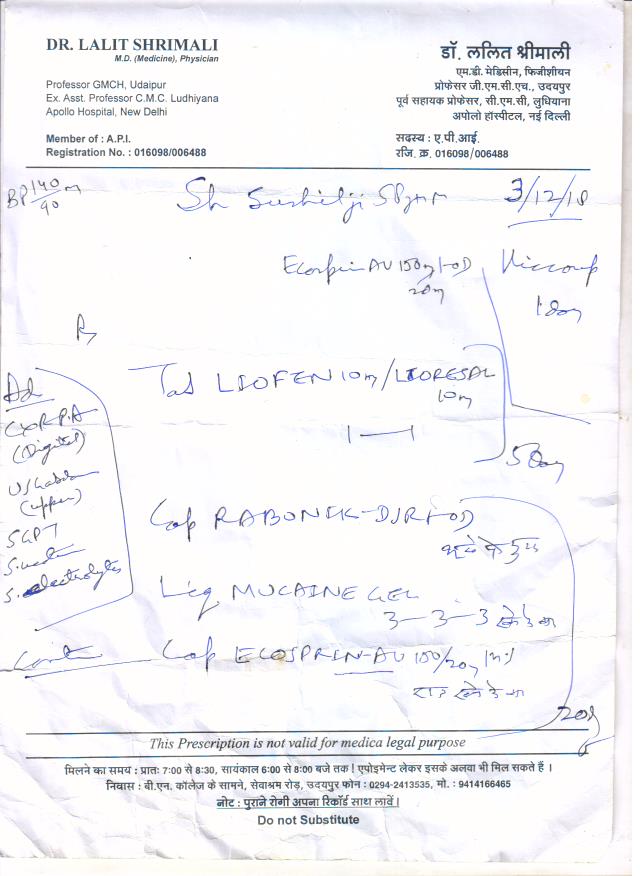 DR. LALIT SHRIMALI
M.D. (Medicine), Physician
Professor GMCH, Udaipur
Ex. Asst. Professor C.M.C. Ludhiyana
Apollo Hospital, New Delhi
Member of : A.P.I.
Registration No. : 016098/006488
डॉ. ललित श्रीमाली
एम.डी. मेडिसीन, फिजीशीयन
प्रोफेसर जी.एम.सी.एच., उदयपुर
पूर्व सहायक प्रोफेसर, सी.एम.सी, लुधियाना
अपोलो हॉस्पीटल, नई दिल्ली
सदस्य : ए.पी.आई.
रजि. क्र. 016098/006488
BP 140/90
Sh Sushilji
3/12/18
Ecosprin AV 150 OD
20
Hiccoup
Ad
CXR P.A
(Digital)
(upper)
SGPT
S. electrolytes
Tab LIOFEN 10m/LIORESAL
10m
1—1
5 day
Cap RABONIK-DSR 1 OD
Liq MUCAINE GEL
3-3-3
Cap ECOSPRIN-AV 150/20
This Prescription is not valid for medica legal purpose
मिलने का समय : प्रातः 7:00 से 8:30, सायंकाल 6:00 से 8:00 बजे तक ! एपोइमेन्ट लेकर इसके अलवा भी मिल सकते हैं ।
निवास : बी.एन. कॉलेज के सामने, सेवाश्रम रोड़, उदयपुर फोन : 0294-2413535, मो. : 9414166465
नोट : पुराने रोगी अपना रिकॉर्ड साथ लावें ।
Do not Substitute